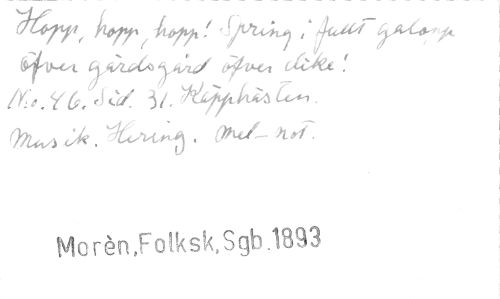 Hopp, hopp, hopp! Spring i fullt galopp
öfver gärdsgård öfver dike!
No. 46. Sid. 31. Käpphästen.
Musik. Hering. Mel-not.
Morèn,Folksk,Sgb.1893